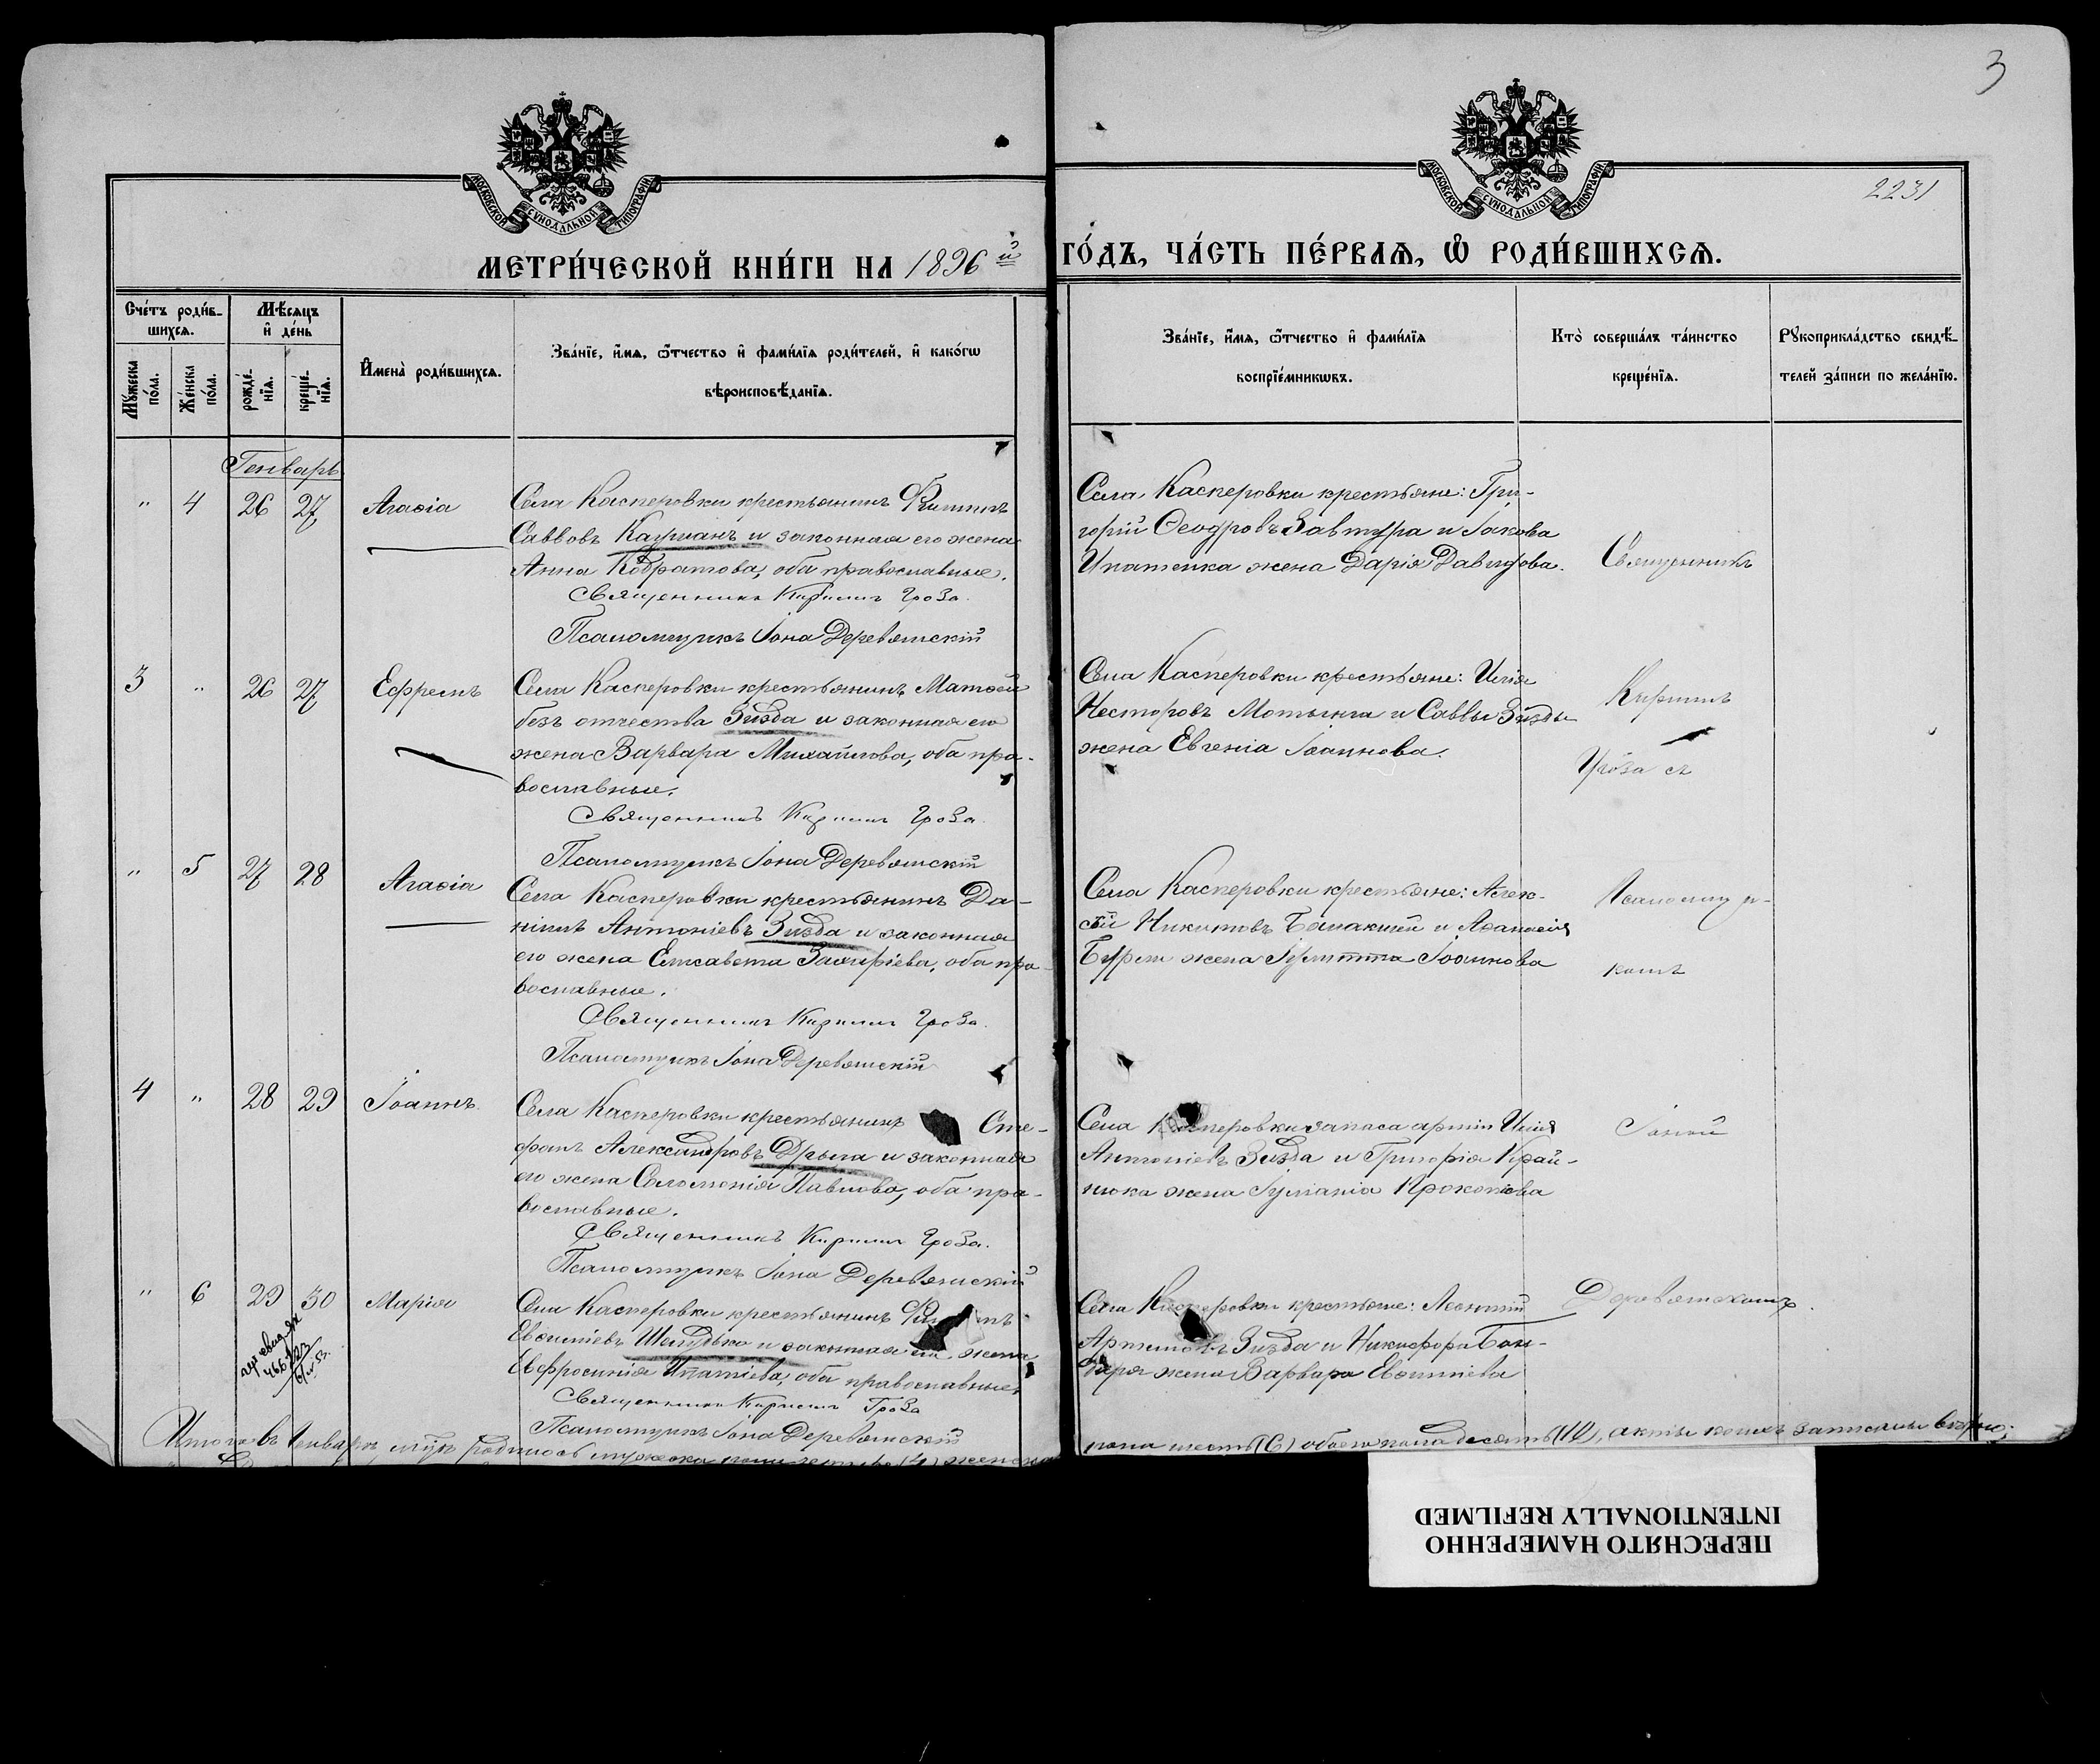 3
2231
МОСКОВСКОЙ СѴНОДАЛЬНОЙ ТИПОГРАФІИ
МОСКОВСКОЙ СѴНОДАЛЬНОЙ ТИПОГРАФІИ
МЕТРИ́ЧЕСКОЙ КНИ́ГИ НА 1896й ГО́ДЪ, ЧА́СТЬ ПЕ́РВАѦ, Ѡ҆ РОДИ́ВШИХСѦ.
Сче́тъ роди́в-
шихсѧ.
Мѣ́сѧцъ
и҆ де́нь
Мꙋ́жеска по́ла.
Же́нска по́ла.
рожде́-нїѧ.
креще́-нїѧ.
И҆мена̀ роди́вшихсѧ.
Зва́нїе, и҆́мѧ, ѻ҆́тчество и҆ фами́лїѧ роди́телей, и҆ како́гѡ
вѣроисповѣ́данїѧ.
Зва́нїе, и҆́мѧ, ѻ҆́тчество и҆ фами́лїѧ
воспрїе́мникѡвъ.
Кто̀ соверша́лъ та́инство
креще́нїѧ.
Рꙋкоприкла́дство свидѣ́-
телей за́писи по жела́нїю.
Генварь
" 4 26 27 Агаѳія
Села Касперовки крестьянинъ Филиппъ
Саввовъ Кацманъ и законная его жена
Анна Кодратова, оба православные.
Священникъ Кириллъ Гроза.
Псаломщикъ Іона Деревянскій
Села Касперовки крестьяне: Гри-
горій Ѳеодоровъ Завтура и Іакова
Ипатенка жена Дарія Давидова.
Священникъ
3 " 26 27 Ефремъ
Села Касперовки крестьянинъ Матѳей
безъ отчества Зизда и законная его
жена Варвара Михайлова, оба пра-
вославные.
Священникъ Кириллъ Гроза.
Псаломщикъ Іона Деревянскій
Села Касперовки крестьяне: Илія
Несторовъ Мотынга и Саввы Зизды
жена Евгенія Іоаннова.
Кириллъ
Гроза съ
" 5 27 28 Агаѳія
Села Касперовки крестьянинъ Да-
ніилъ Антоніевъ Зизда и законная
его жена Елисавета Захаріева, оба пра-
вославные.
Священникъ Кириллъ Гроза.
Псаломщикъ Іона Деревянскій
Села Касперовки крестьяне: Алек-
сѣй Никитовъ и Аѳанасія
жена Іулитта Іоаннова
Псаломщи-
комъ
4 " 28 29 Іоаннъ
Села Касперовки крестьянинъ Сте-
фанъ Александровъ Дрыга и законная
его жена Соломонія Павлова, оба пра-
вославные.
Священникъ Кириллъ Гроза.
Псаломщикъ Іона Деревянскій
Села Касперовки запаса арміи Илія
Антоніевъ Зизда и Григорія Край-
нюка жена Іуліанія Прокопіева
Іоной
" 6 29 30 Марія
Села Касперовки крестьянинъ
Евѳиміевъ и законная его жена
Евфросинія Ипатіева, оба православные.
Священникъ Кириллъ Гроза
Псаломщикъ Іона Деревянскій
Села Касперовки крестьяне: Леонтій
Артемовъ Зизда и Никифора Бон-
даря жена Варвара Евѳиміева
Деревянскимъ.
Итого въ Генварѣ родилось мужска пола четыре (4) женска
пола шесть (6) обоего пола десять (10), акты коихъ записаны вѣрно;
ПЕРЕСНЯТО НАМЕРЕННО
INTENTIONALLY REFILMED